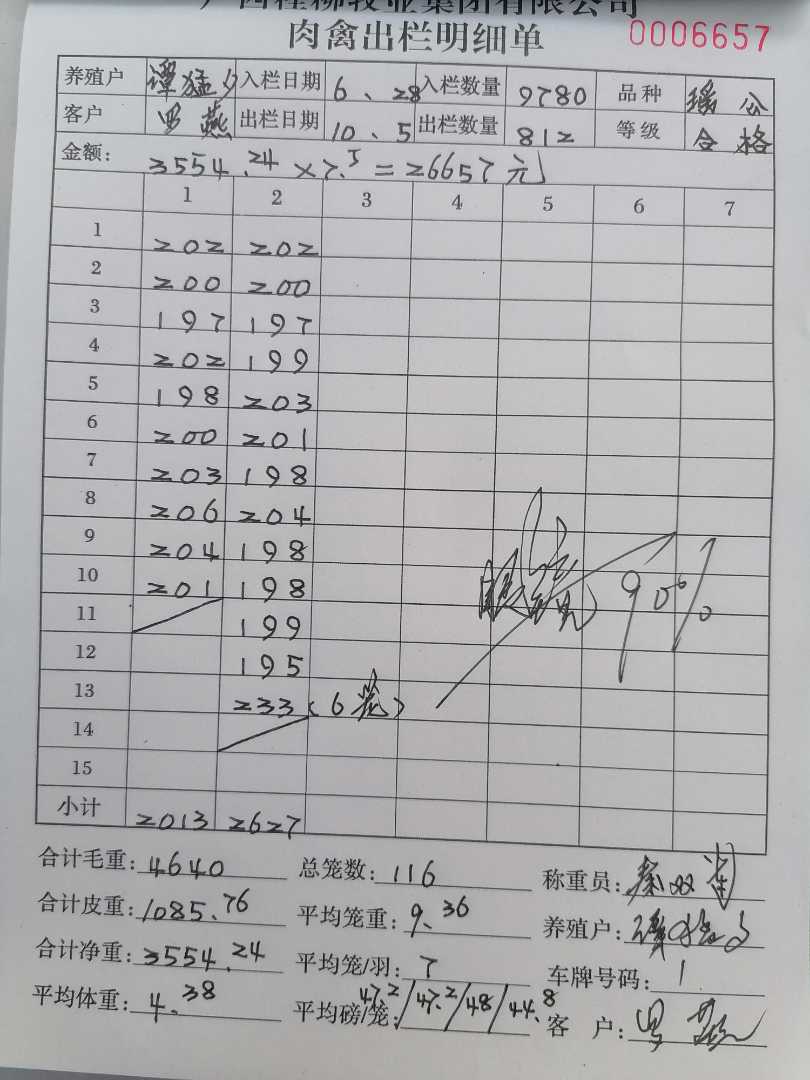 广西桂柳牧业集团有限公司
肉禽出栏明细单 0006657
养殖户 谭猛 入栏日期 6、28 入栏数量 9780 品种 瑶公
客户 罗燕 出栏日期 10、5 出栏数量 812 等级 合格
金额: 3554.24×7.5=26657元
1 2 3 4 5 6 7
1 202 202
2 200 200
3 197 197
4 202 199
5 198 203
6 200 201
7 203 198
8 206 204
9 204 198
10 201 198 90%
11 199
12 195
13 233(6笼)
14
15
小计 2013 2627
合计毛重: 4640 总笼数: 116 称重员:
合计皮重: 1085.76 平均笼重: 9.36 养殖户:
合计净重: 3554.24 平均笼/羽: 7 车牌号码: 1
平均体重: 4.38 平均磅/笼: 47.2/47.2/48/44.8 客 户: 罗燕